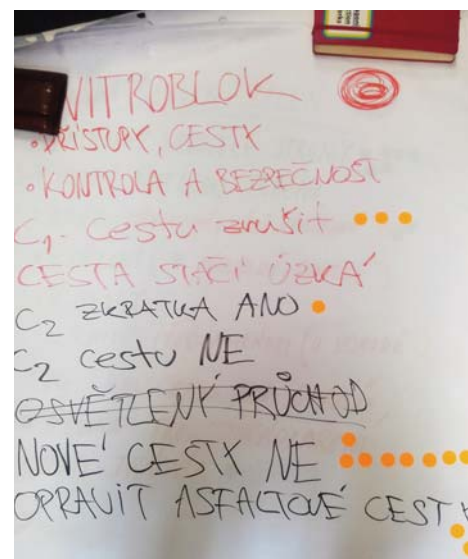 VITROBLOK
• PŘÍSTUPY, CESTY
• KONTROLA A BEZPEČNOST
C1 - cestu zrušit
CESTA STAČÍ ÚZKÁ
C2 ZKRATKA ANO
C2 cestu NE
OSVĚTLENÝ PRŮCHOD
NOVÉ CESTY NE
OPRAVIT ASFALTOVÉ CESTY